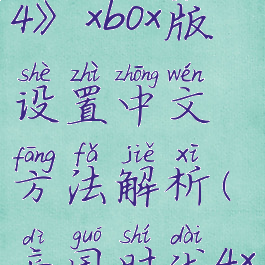 4》 xbox版
shè zhì zhōng wén
设置中文
fāng fǎ jiě xī
方法解析(
dì guó shí dài
帝国时代4x